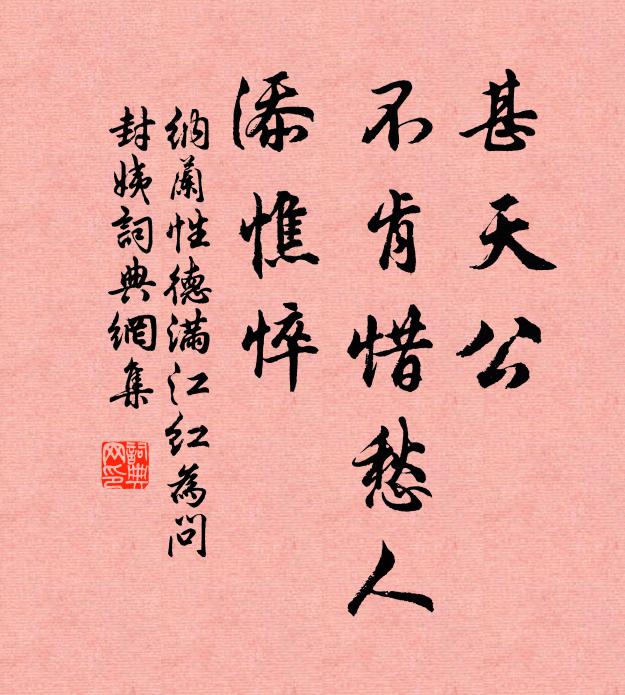 甚天公
不肯惜愁人
添憔悴
納蘭性德滿江紅為問
封姨詞典網集
詞典
网印